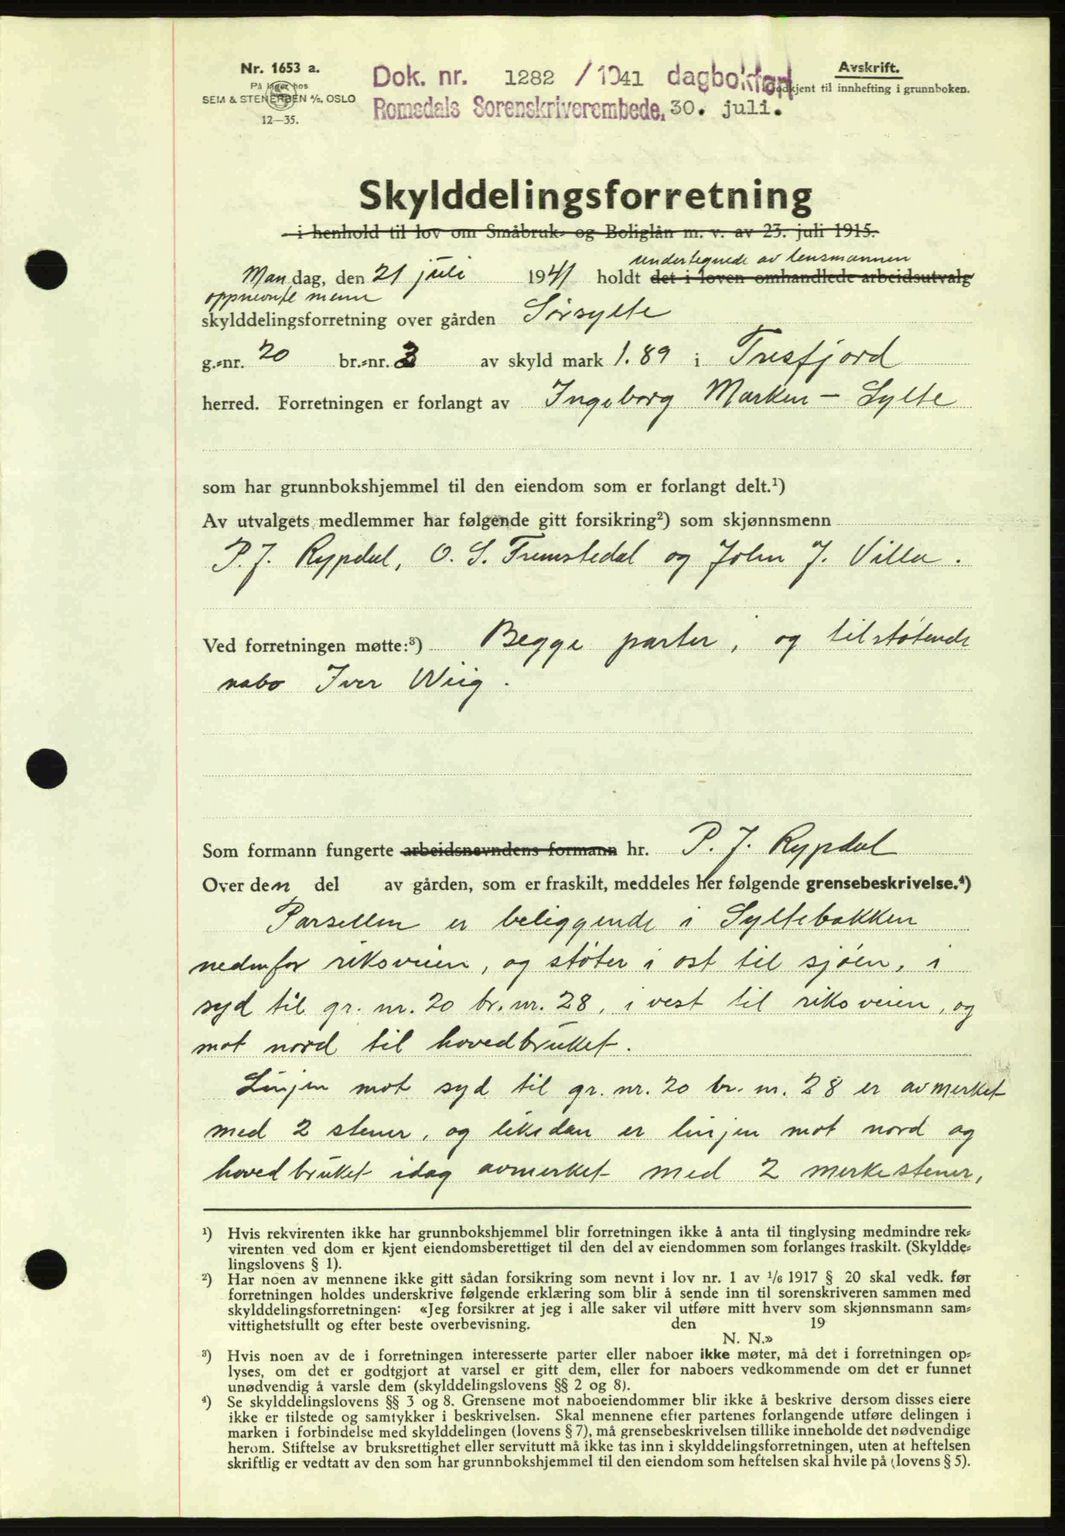 Nr. 1653 a.
På lager hos
SEM & STENERSEN A/S, OSLO
12—35.
Dok. nr. 1282 /1941 dagbokført
Romsdals Sorenskriverembede, 30. juli.
Avskrift.
Godkjent til innhefting i grunnboken.
Skylddelingsforretning
i henhold til lov om Småbruk- og Boliglån m. v. av 23. juli 1915.
undertegnede av lensmannen
Mandag, den 21 juli 1941 holdt det i loven omhandlede arbeidsutvalg
oppnevnte menn
skylddelingsforretning over gården Sørsylte
g.-nr. 20 br.-nr. 3 av skyld mark 1.89 i Tresfjord
herred. Forretningen er forlangt av Ingeborg Marken - Sylte
som har grunnbokshjemmel til den eiendom som er forlangt delt.¹)
Av utvalgets medlemmer har følgende gitt forsikring²) som skjønnsmenn
P. J. Rypdal, O. S. Fremstedal og John J. Villa.
Ved forretningen møtte:³) Begge parter, og tilstøtende
nabo Iver Wiig.
Som formann fungerte arbeidsnevndens formann hr. P. J. Rypdal
Over den del av gården, som er fraskilt, meddeles her følgende grensebeskrivelse.⁴)
Parsellen er beliggende i Syltebakken
nedenfor riksveien, og støter i øst til sjøen, i
syd til gr. nr. 20 br. nr. 28, i vest til riksveien, og
mot nord til hovedbruket.
Linjen mot syd til gr. nr. 20 br. nr. 28 er avmerket
med 2 stener, og likedan er linjen mot nord og
hovedbruket idag avmerket med 2 merkestener,
¹) Hvis rekvirenten ikke har grunnbokshjemmel blir forretningen ikke å anta til tinglysing medmindre rek-
virenten ved dom er kjent eiendomsberettiget til den del av eiendommen som forlanges fraskilt. (Skyldde-
lingslovens § 1).
²) Har noen av mennene ikke gitt sådan forsikring som nevnt i lov nr. 1 av ¹/₆ 1917 § 20 skal vedk. før
forretningen holdes underskrive følgende erklæring som blir å sende inn til sorenskriveren sammen med
skylddelingsforretningen: «Jeg forsikrer at jeg i alle saker vil utføre mitt hverv som skjønnsmann sam-
vittighetsfullt og efter beste overbevisning. den 19
N. N.»
³) Hvis noen av de i forretningen interesserte parter eller naboer ikke møter, må det i forretningen op-
lyses, om det er godtgjort at varsel er gitt dem, eller for naboers vedkommende om det er funnet
unødvendig å varsle dem (skylddelingslovens §§ 2 og 8).
⁴) Se skylddelingslovens §§ 3 og 8. Grensene mot naboeiendommer blir ikke å beskrive dersom disses eiere
ikke er tilstede og samtykker i beskrivelsen. Skal mennene efter partenes forlangende utføre delingen i
marken i forbindelse med skylddelingen (lovens § 7), må grensebeskrivelsen tillike inneholde det nødvendige
herom. Stiftelse av bruksrettighet eller servitutt må ikke tas inn i skylddelingsforretningen, uten at heftelsen
skriftlig er vedtatt av den som har grunnbokshjemmel til den eiendom som heftelsen skal hvile på (lovens § 5).